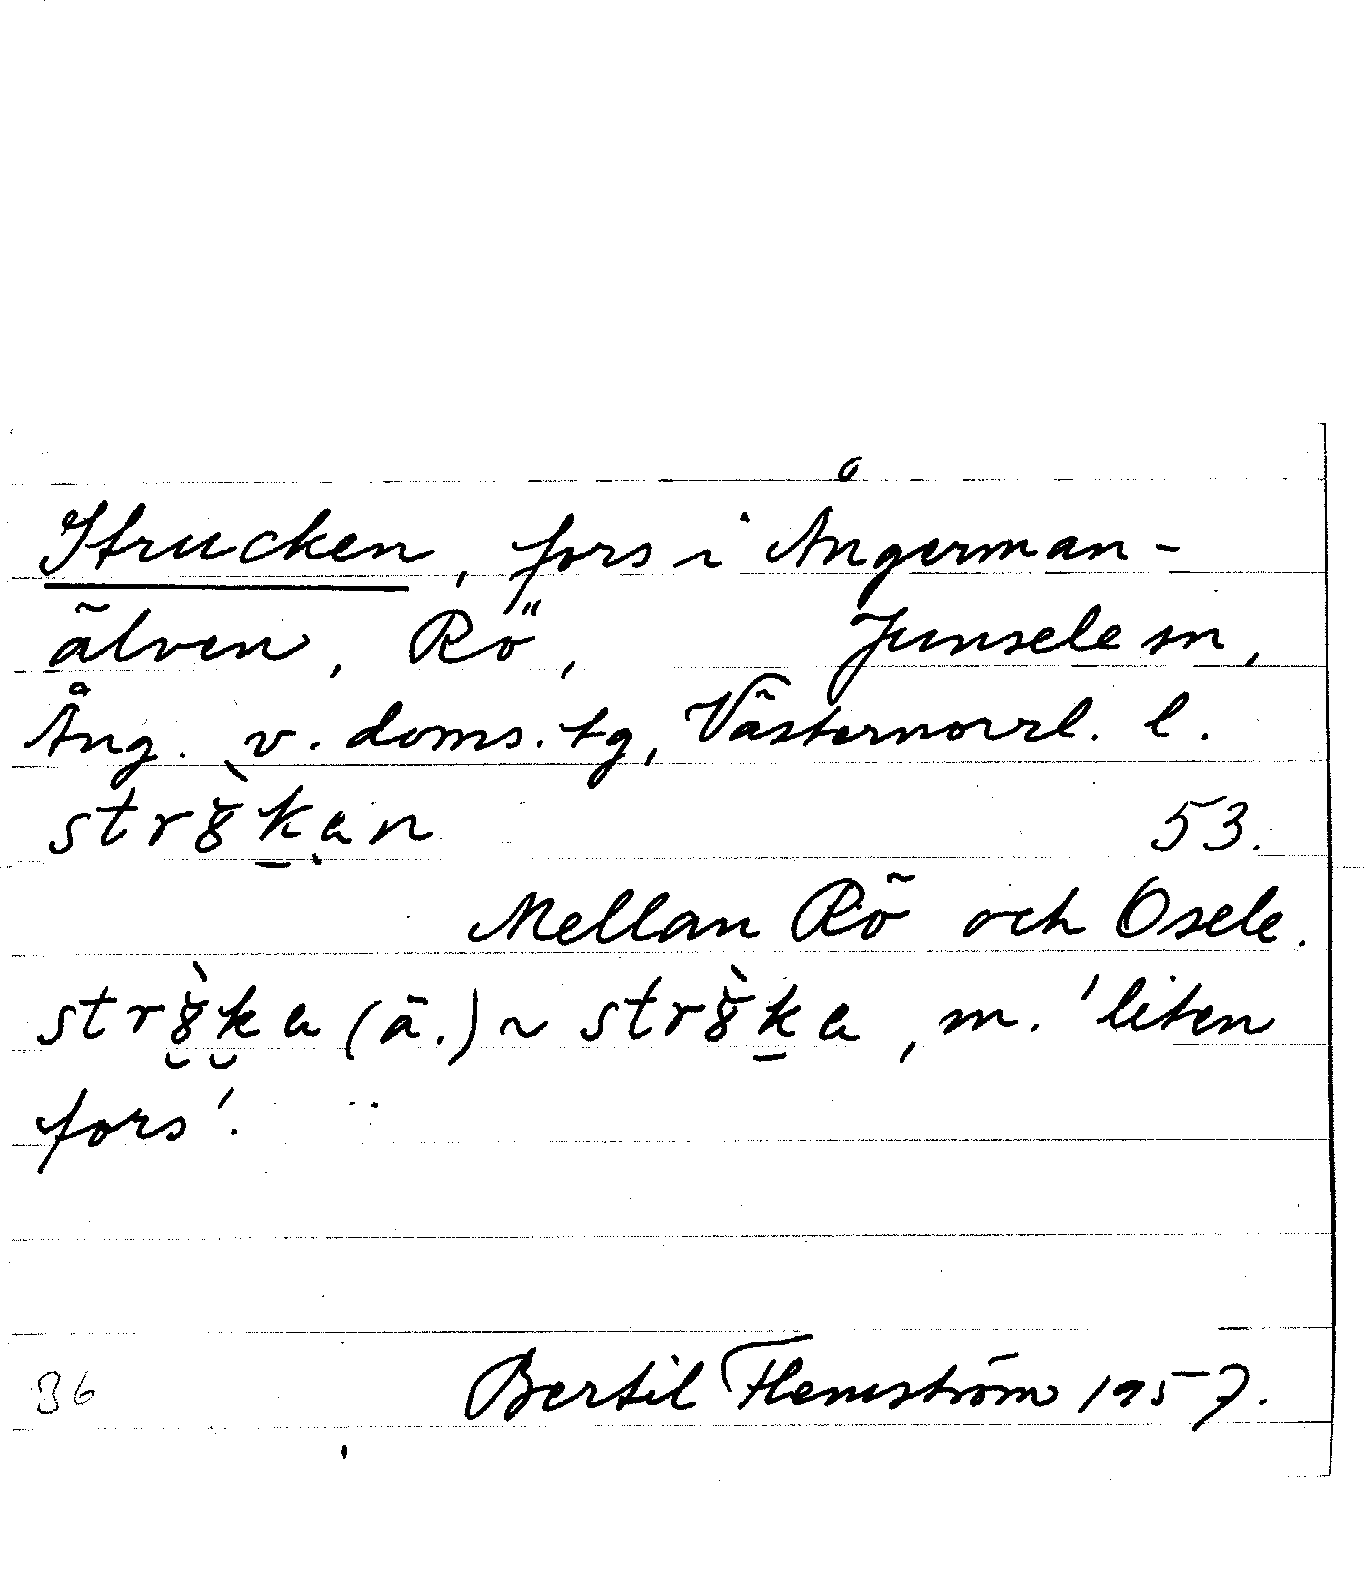 Strucken, fors i Ångerman-
älven, Rö, Junsele sn,
Ång. v. doms. tg, Västernorrl. l.
strȣ̀k̠ạn 53.
Mellan Rö och Osele.
strȣ̮̀k̮a (ä.) ~ strȣ̀k̠a, m. 'liten
fors'.
B6 Bertil Flemström 1957.